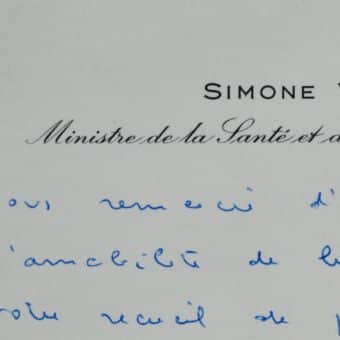 SIMONE V
Ministre de la Santé et d
vous remercie d'
l'amabilité de
votre recueil de p